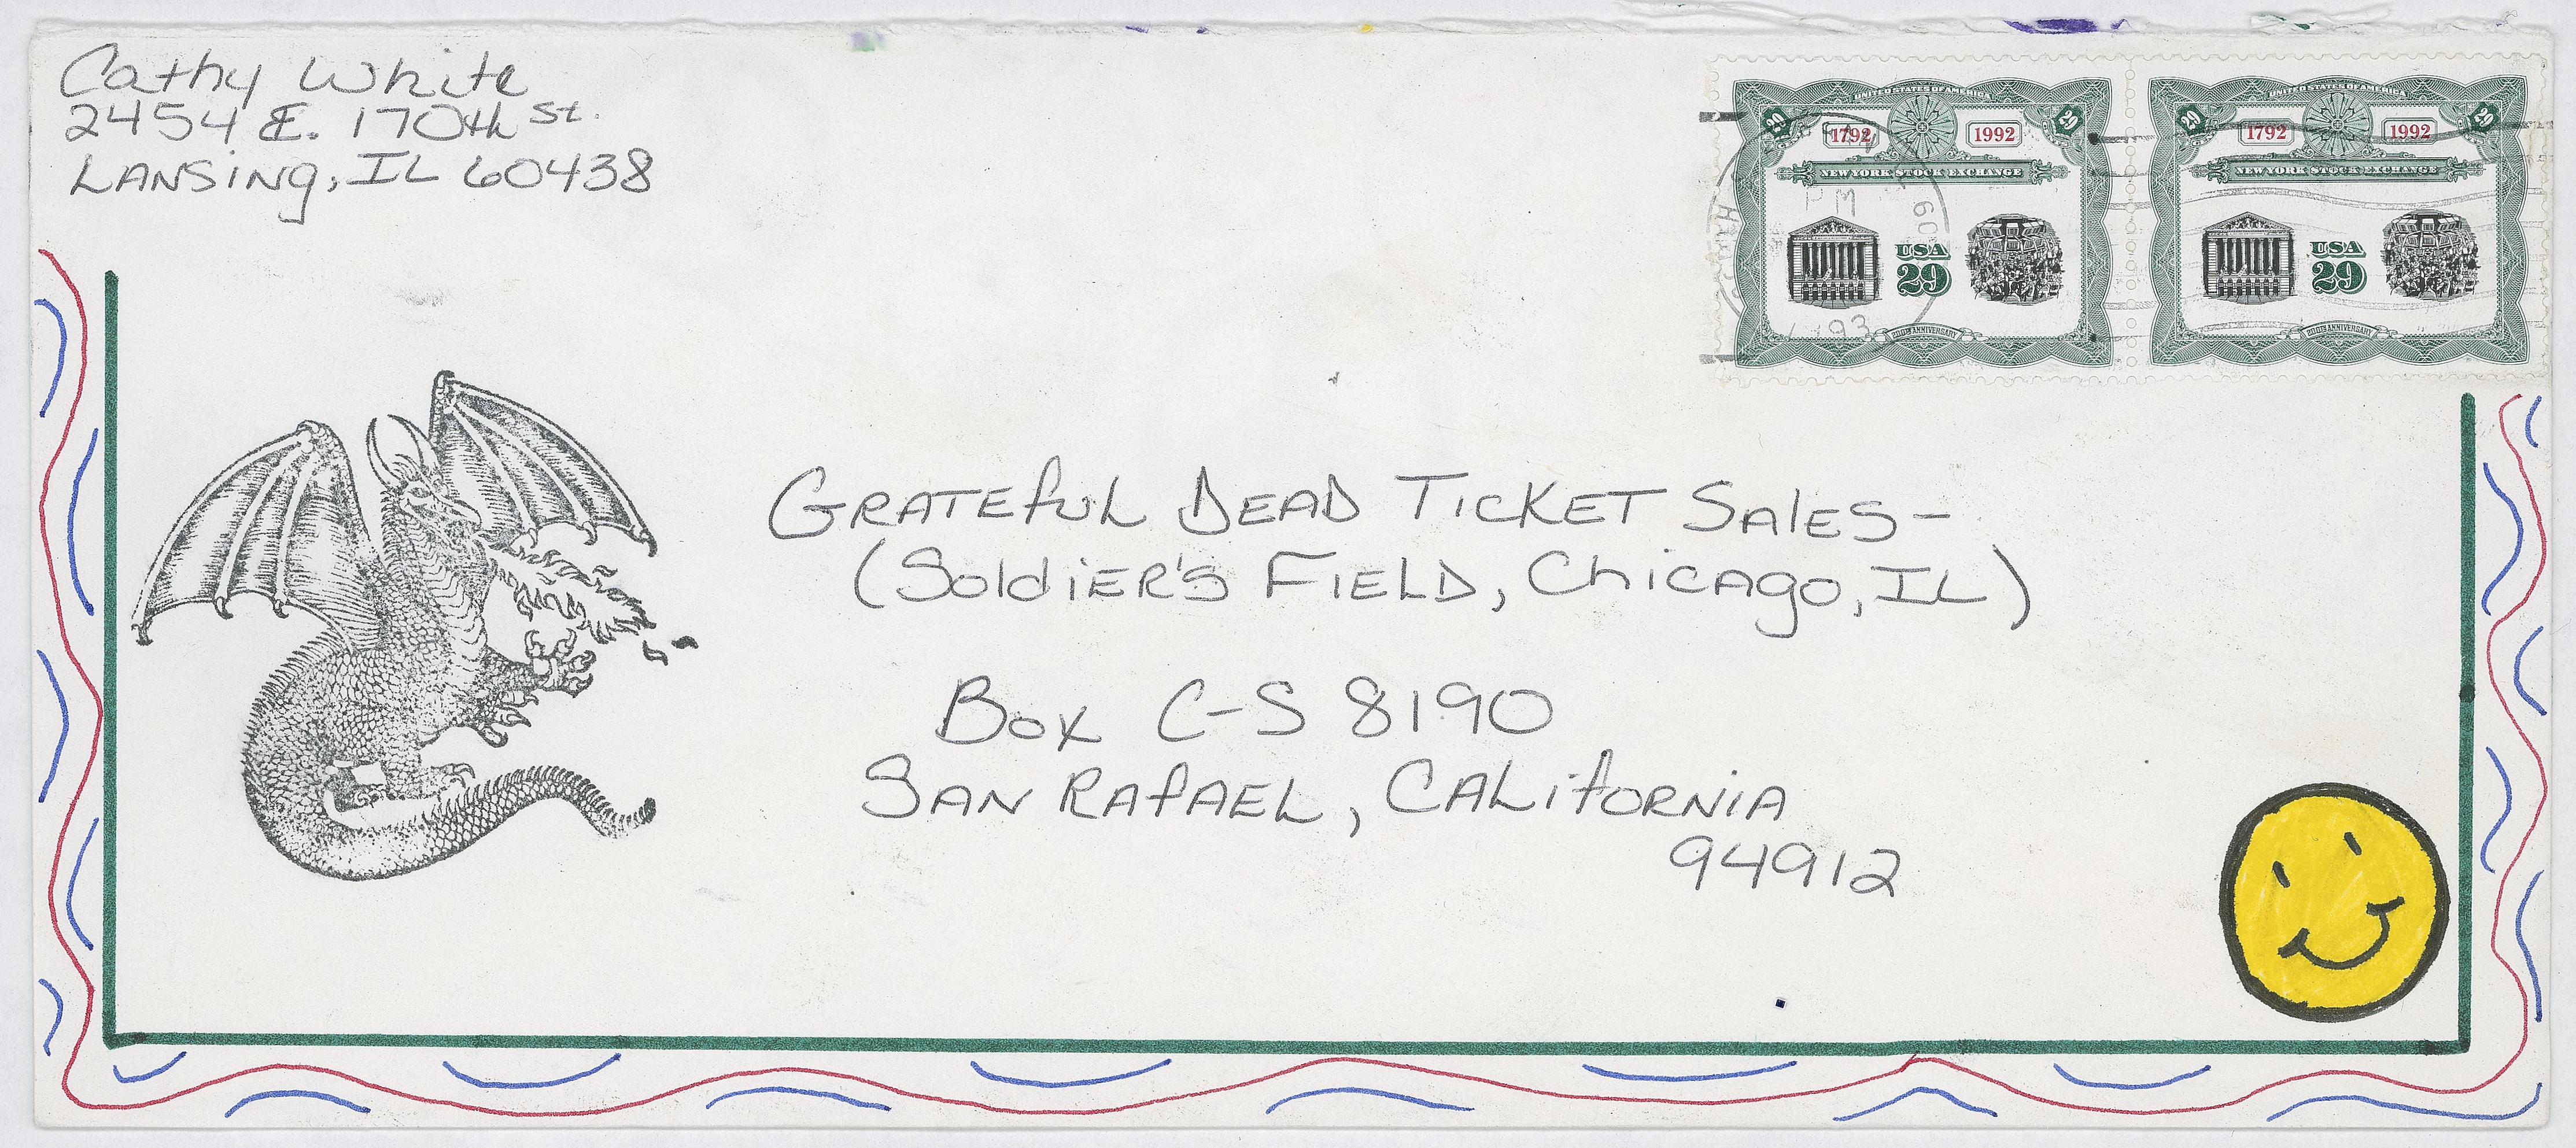 Cathy White
2454 E. 170th St.
LANSING, IL 60438
UNITED STATES OF AMERICA
29 1792 1992 29
NEW YORK STOCK EXCHANGE
USA
29
200TH ANNIVERSARY
UNITED STATES OF AMERICA
29 1792 1992 29
NEW YORK STOCK EXCHANGE
USA
29
200TH ANNIVERSARY
PM
93
GRATEfuL DEAD TICKET SAlES-
(SoldiER'S FIELD, ChicAgo, IL)
Box C-S 8190
SAN RAfAEL, CALifORNiA
94912